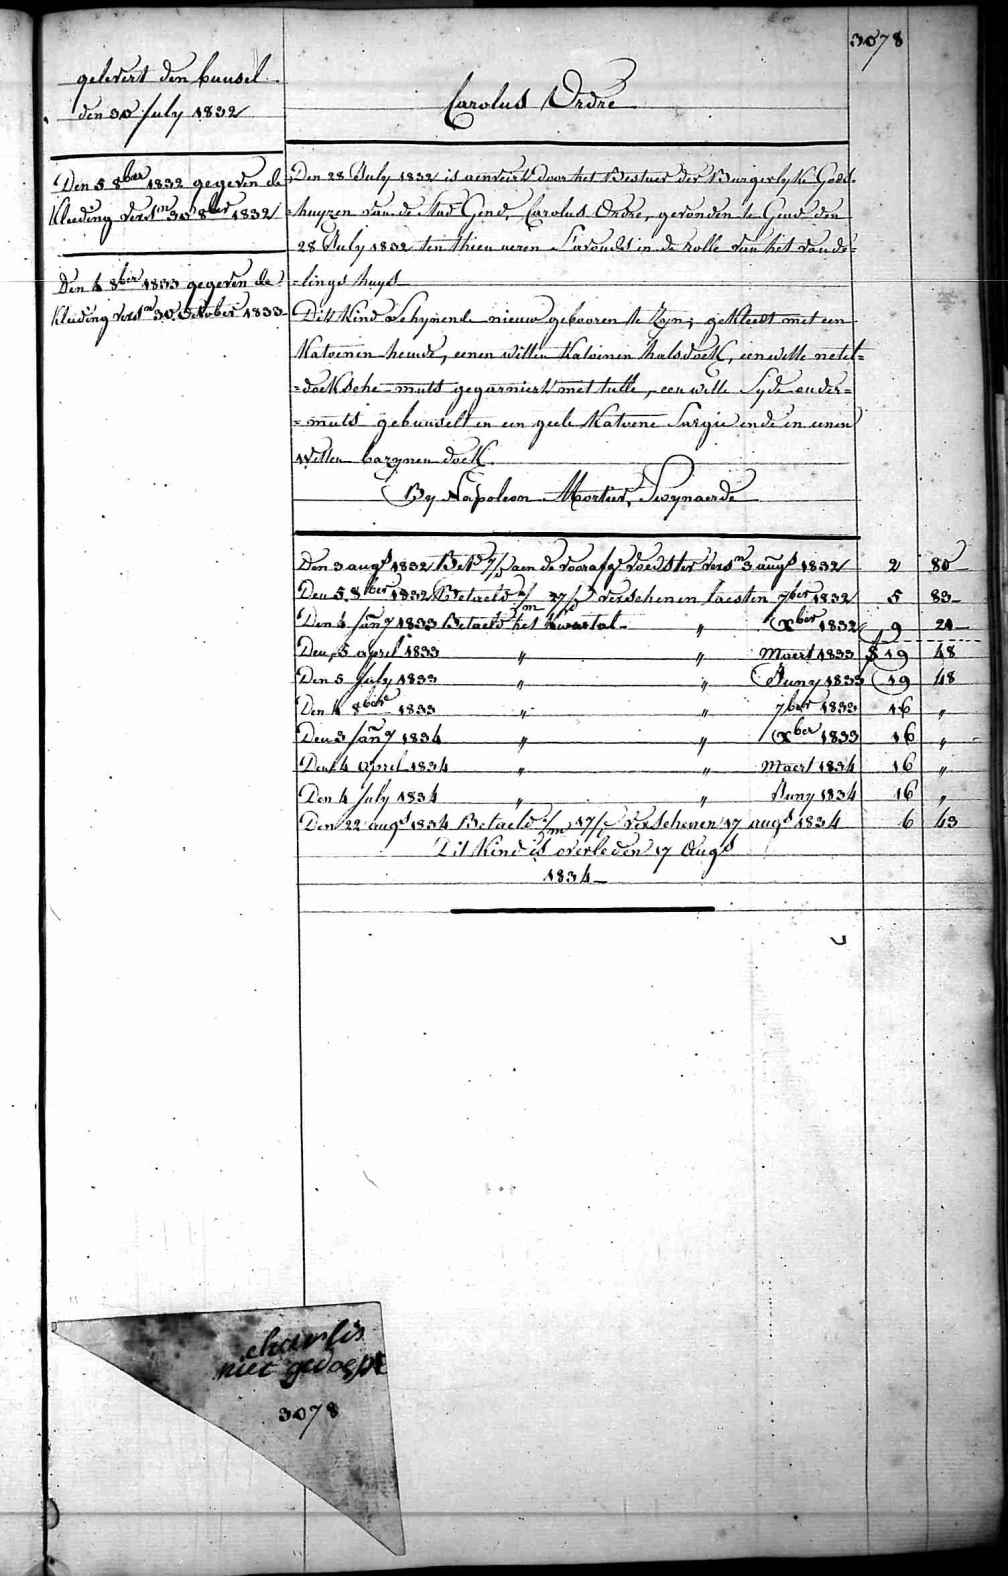 3078
gelevert den bunsel
den 30 July 1832
Den 5 8ber 1832 gegeven de
Kleeding versn 30 8ber 1832
Den 4 8ber 1833 gegeven de
Kleeding versn 30 October 1833
Carolus Ordre
Den 28 July 1832 is aenveirt door het Bestuer der Burgerlyke Gods-
-huyzen van de stad Gend, Carolus Ordre, gevonden te Gend den
28 July 1832 ten thien ueren s'avonds in de rolle van het vonde-
-lings huys
Dit Kind schynende nieuw gebooren te zyn; gekleedt met een
Katoenen hemde, eenen witten Katoenen halsdoek, een witte netel-
-doeksche muts gegarniert met tulle, een witte syde onder-
-muts gebunselt in een geele Katoene sargie ende in eenen
witten bazynen doek
By Napoleon Mortier, Swynaerde
Den 3 augs 1832 Bet aen de voorafge voedster versn 3 augs 1832 2 80
Den 5 8ber 1832 Betaeld 2/m 27/d verschenen laesten 7ber 1832 5 83
Den 4 Jany 1833 Betaeld het kwartal " Xber 1832 9 21
Den 5 april 1833 " " Maert 1833 19 48
Den 5 July 1833 " " Juny 1833 19 48
Den 4 8bere 1833 " " 7ber 1833 16 "
Den 3 Jany 1834 " " Xber 1833 16 "
Den 4 april 1834 " " Maert 1834 16 "
Den 4 July 1834 " " Juny 1834 16 "
Den 22 augs 1834 Betaeld 1/m 17/d verschenen 17 augs 1834 6 43
Dit Kind is overleden 17 Augs
1834
charlis
niet gedoept
3078